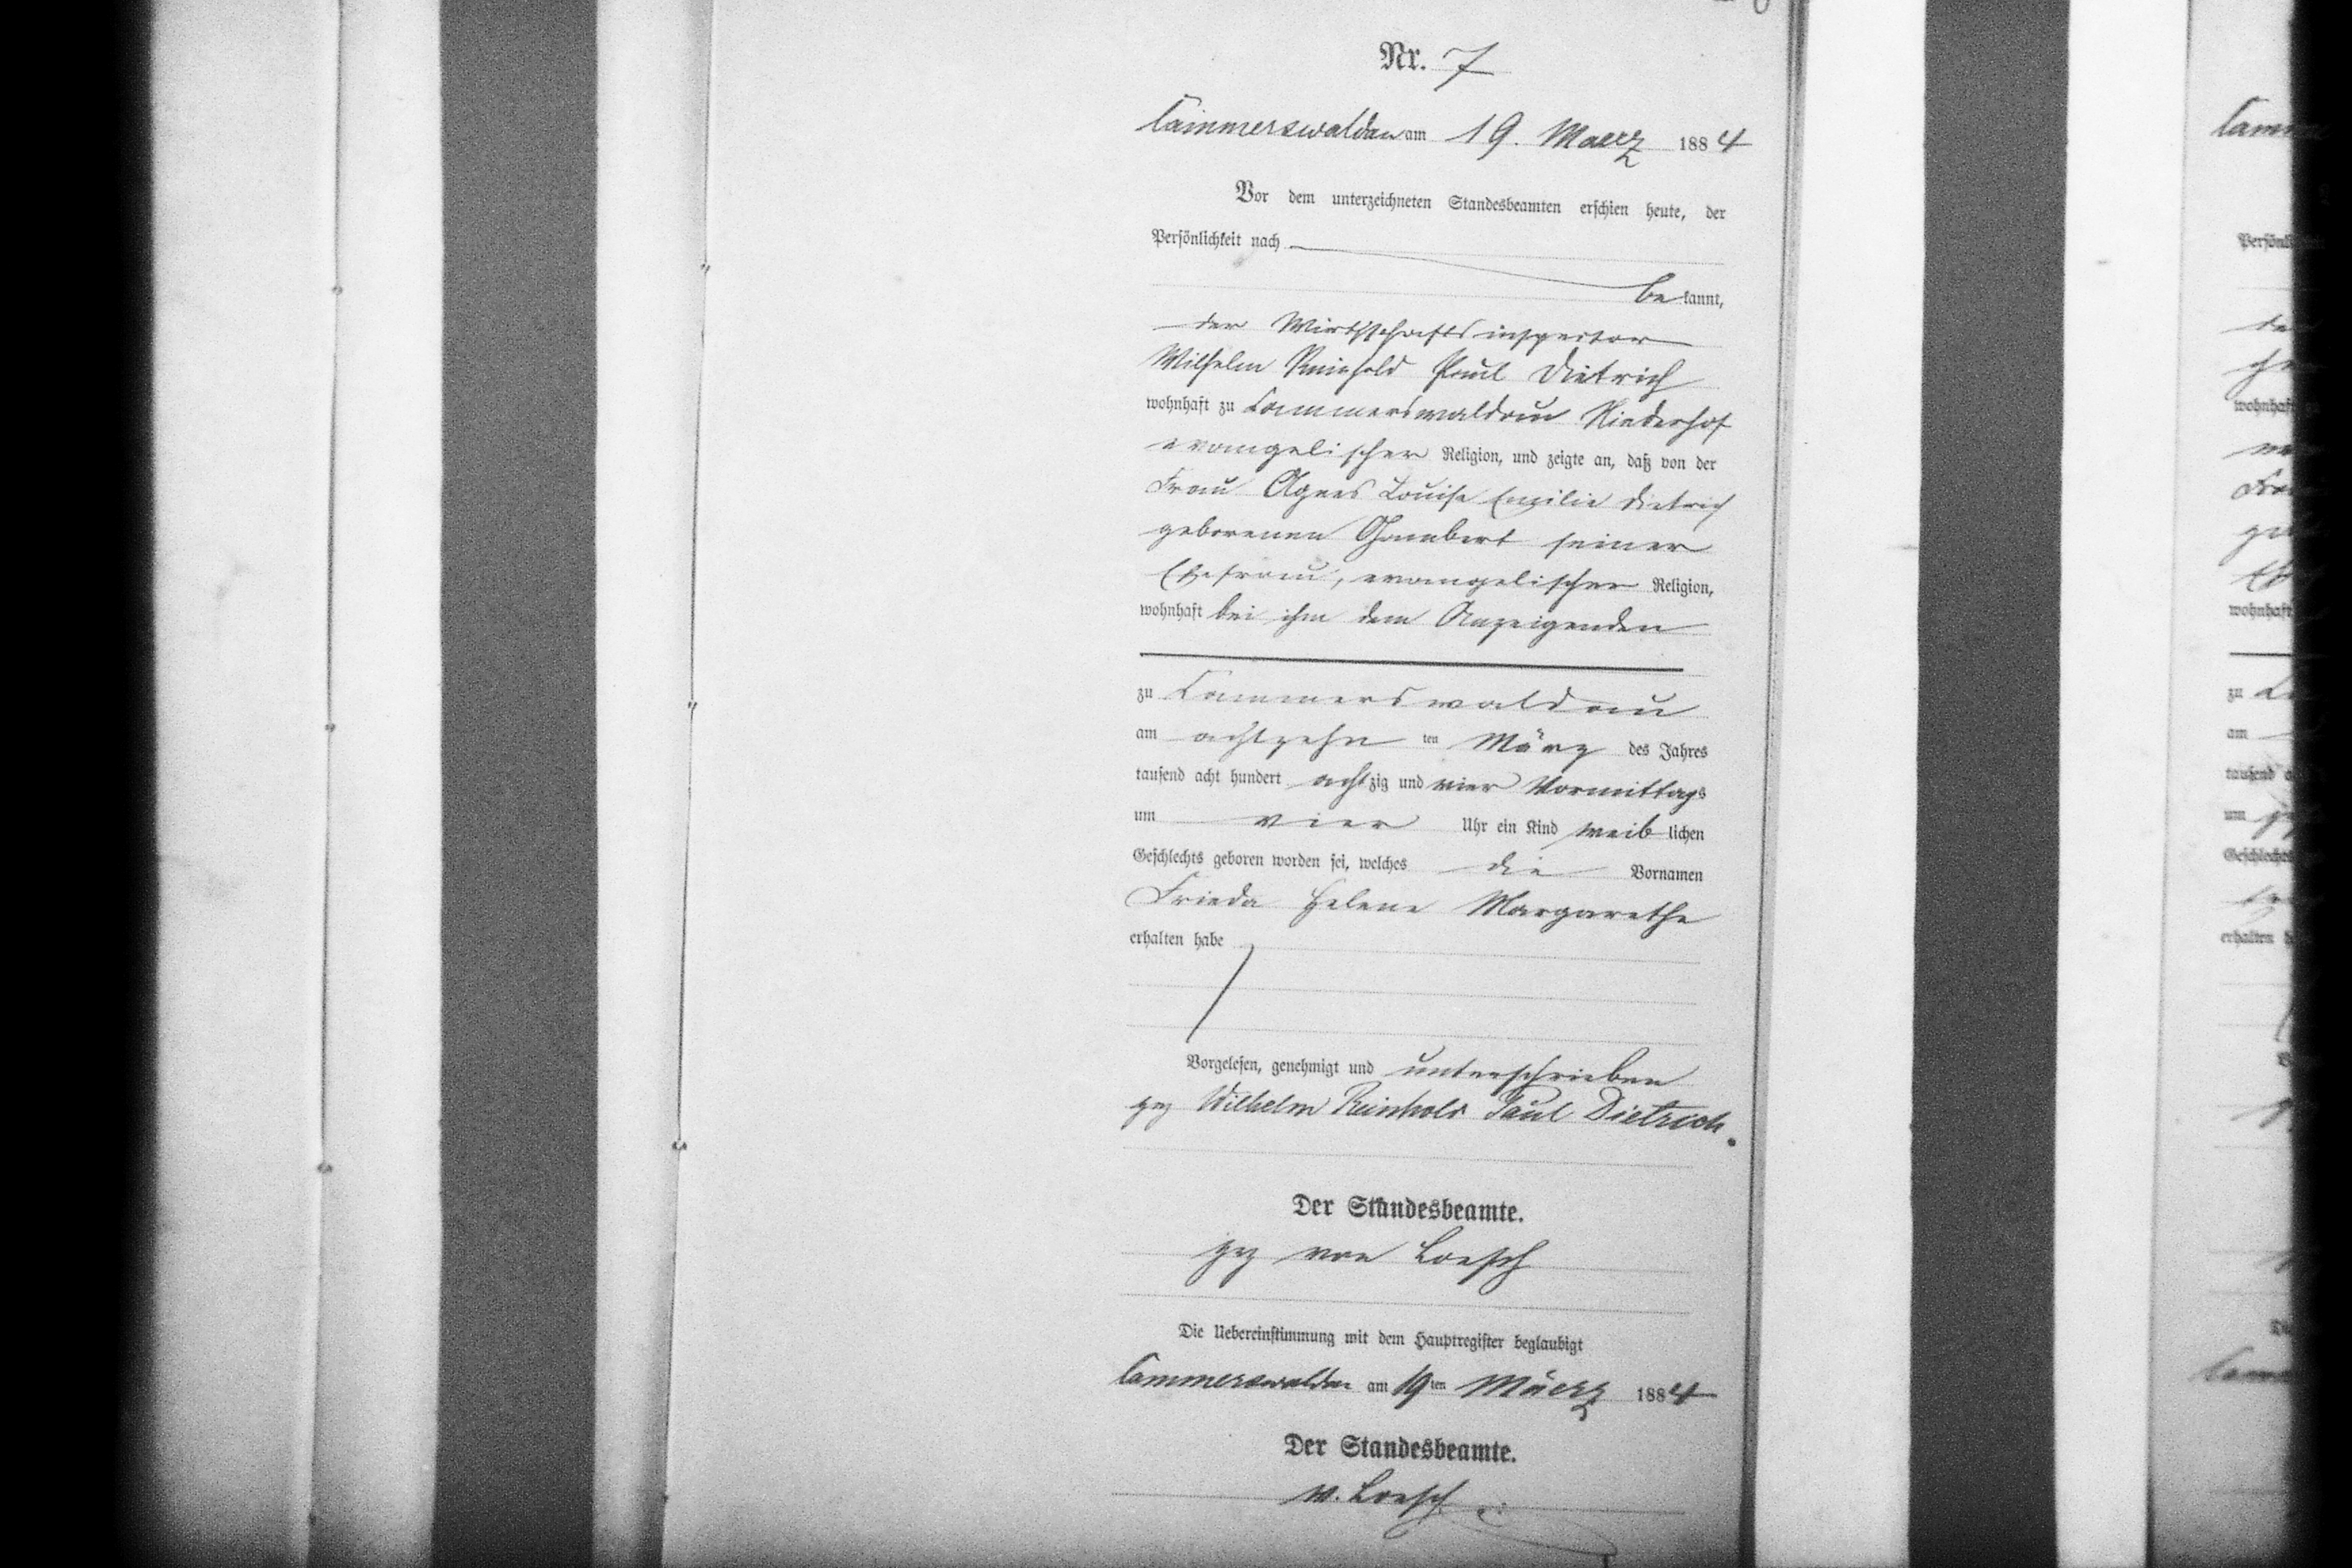 Nr. 7
Cammerswaldau am 19. Maerz 1884
Vor dem unterzeichneten Standesbeamten erschien heute, der
Persönlichkeit nach
bekannt,
der Wirthschaftsinspector
Wilhelm Reinhold Paul Dietrich
wohnhaft zu Cammerswaldau Niederhof
evangelischer Religion, und zeigte an, daß von der
Frau Agnes Louise Emilie Dietrich
geborenen seiner
Ehefrau, evangelischer Religion,
wohnhaft bei ihm dem Anzeigenden
zu Cammerswaldau
am achtzehnten März des Jahres
tausend acht hundert achtzig und vier Vormittags
um vier Uhr ein Kind weiblichen
Geschlechts geboren worden sei, welches die Vornamen
Frieda Helene Margarethe
erhalten habe
Vorgelesen, genehmigt und unterschrieben
gez Wilhelm Reinhold Paul Dietrich.
Der Standesbeamte.
gez von Loesch
Die Uebereinstimmung mit dem Hauptregister beglaubigt
Cammerswaldau am 19ten Märrz 1884
Der Standesbeamte.
v. Loesch